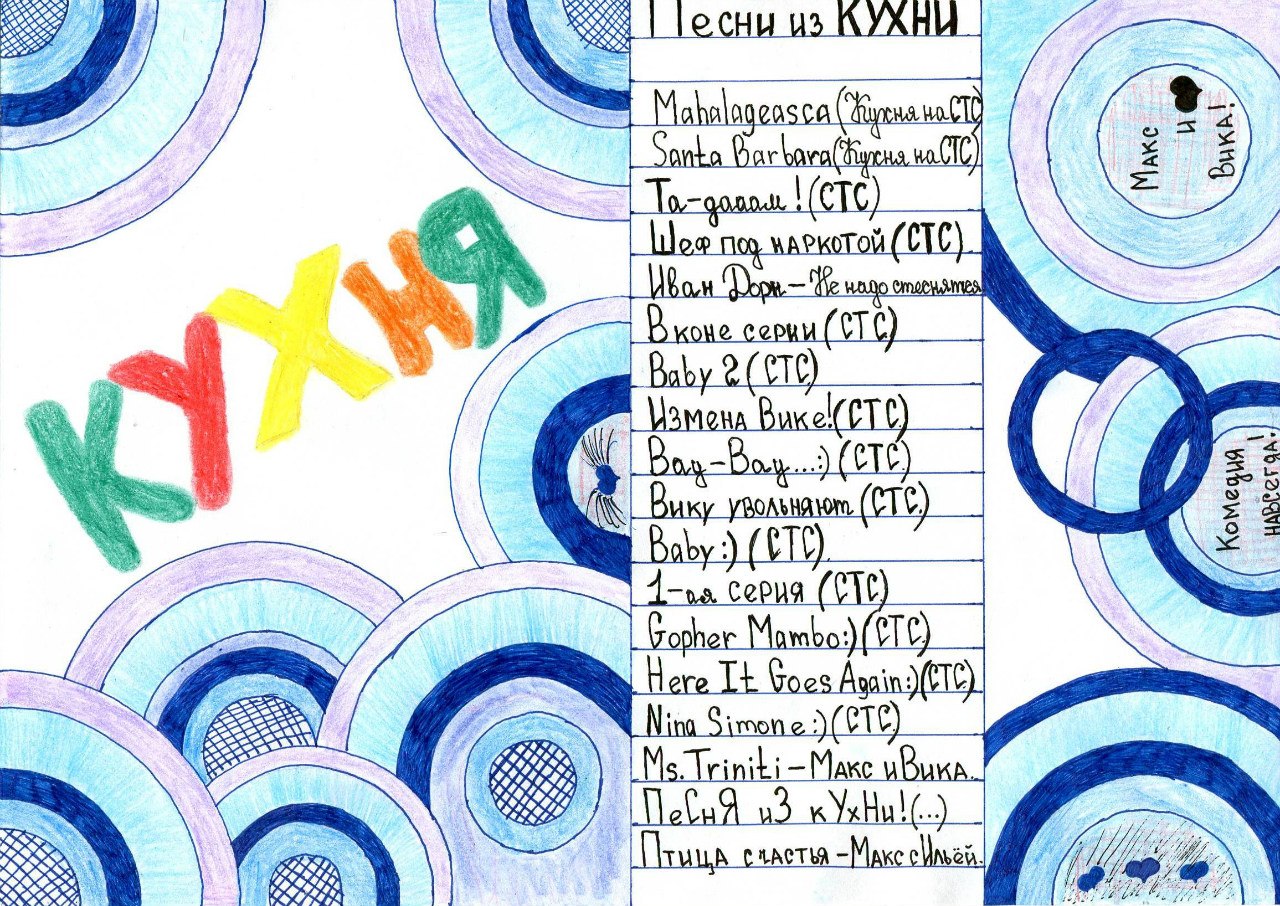 КУХНЯ
Песни из КУХНИ
Mahalageasca (Кухня на СТС)
Santa Barbara (Кухня на СТС)
Та-дааам! (СТС)
Шеф под наркотой (СТС)
Иван Дорн – Не надо стеснятея
В коне серии (СТС)
Baby 2 (СТС)
Измена Вике! (СТС)
Вау-Вау...:) (СТС)
Вику увольняют (СТС.)
Baby :) (СТС).
1-ая серия (СТС)
Gopher Mambo:) (СТС)
Here It Goes Again:) (СТС)
Nina Simone:) (СТС)
Ms. Triniti – Макс и Вика.
ПеСнЯ иЗ кУхНи! (...)
Птица счастья – Макс с Ильёй.
Макс
и
Вика!
Комедия
навсегда!